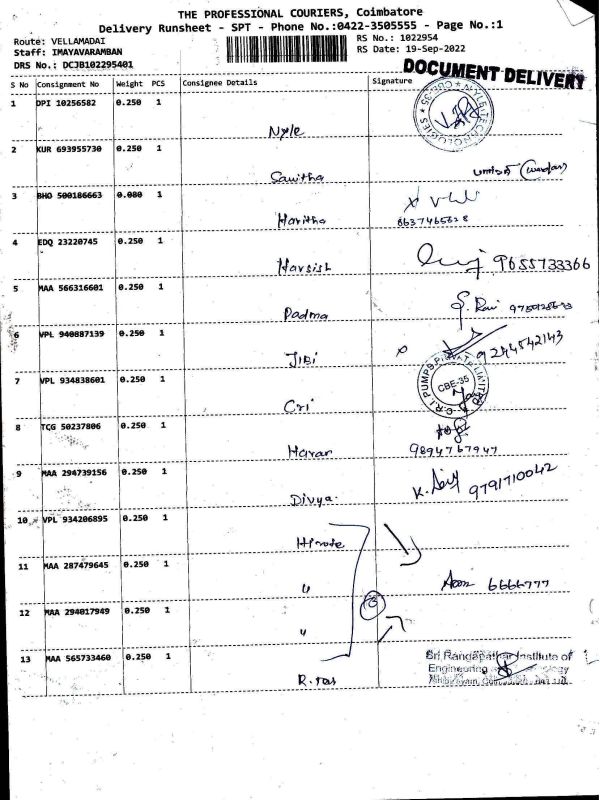 THE PROFESSIONAL COURIERS, Coimbatore
Delivery Runsheet - SPT - Phone No.:0422-3505555 - Page No.:1
Route: VELLAMADAI
RS No.: 1022954
Staff: IMAYAVARAMBAN
RS Date: 19-Sep-2022
DRS No.: DCJB102295401
DOCUMENT DELIVERY
S No Consignment No Weight PCS Consignee Details Signature
1 DPI 10256582 0.250 1
Nyle
2 KUR 693955730 0.250 1
Savitha
3 BHO 500186663 0.080 1
Haritha
4 EDQ 23220745 0.250 1
Harsish 9655733366
5 MAA 566316601 0.250 1
Padma
6 VPL 940887139 0.250 1
JIBI 9244542143
7 VPL 934838601 0.250 1
C.R.I. PUMPS PRIVATE LIMITED
CBE-35
Cri
8 TCG 50237806 0.250 1
Haran 9894767947
9 MAA 294739156 0.250 1
Divya. 9791710042
10 VPL 934206895 0.250 1
11 MAA 287479645 0.250 1
" 6666777
12 MAA 294017949 0.250 1
"
13 MAA 565733460 0.250 1
Sri Ranganathar Institute of
Engineering